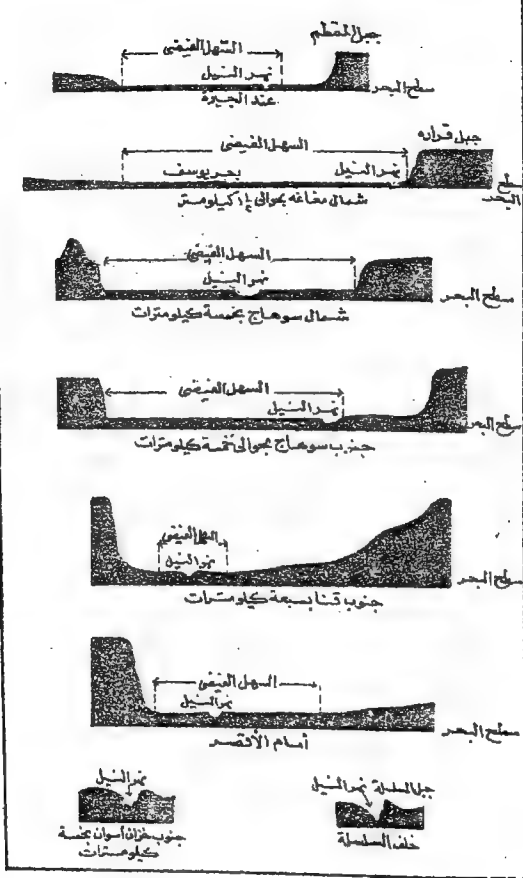 جبل المقطم
السهل الفيضى
نهر النيل
سطح البحر
عند الجيزة
جبل قراره
السهل الفيضى
نهر النيل
بحر يوسف
سطح البحر
شمال مغاغه بحوالى كيلومتر
السهل الفيضى
نهر النيل
سطح البحر
شمال سوهاج بخمسة كيلومترات
السهل الفيضى
نهر النيل
سطح البحر
جنوب سوهاج بحوالى خمسة كيلومترات
السهل الفيضى
نهر النيل
سطح البحر
جنوب قنا بسبعة كيلومترات
السهل الفيضى
نهر النيل
سطح البحر
أمام الأقصر
جبل السلسلة
نهر النيل
خلف السلسلة
نهر النيل
جنوب خزان أسوان بخمسة
كيلومترات